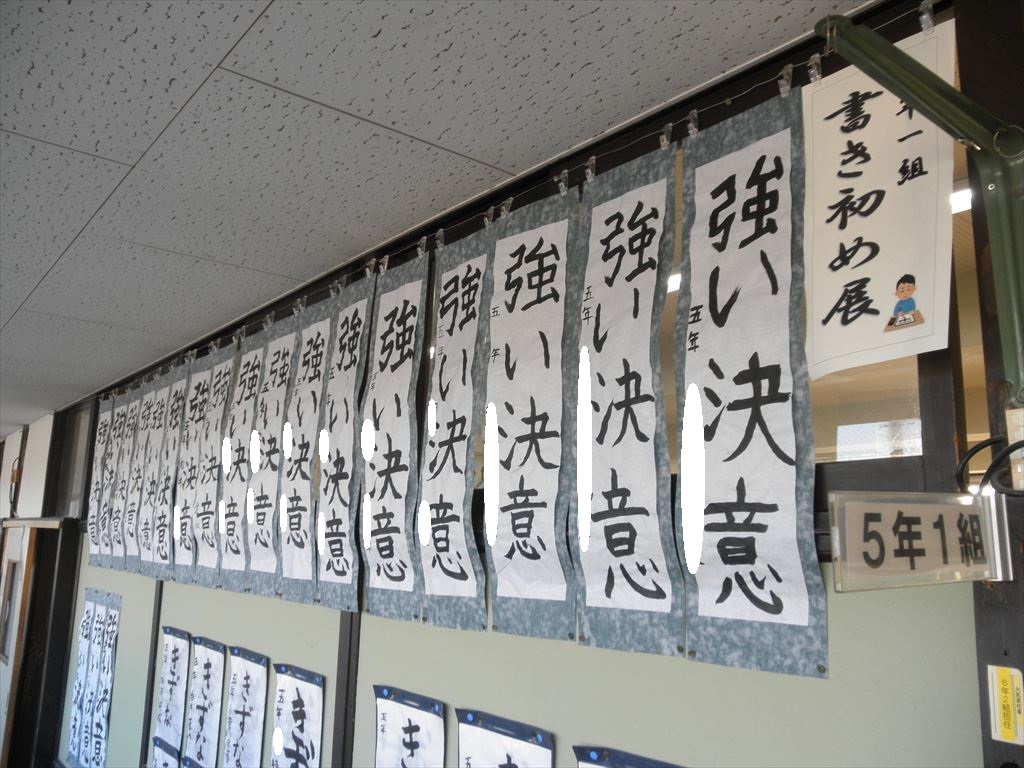 年一組
書き初め展
5年1組
6年2組担任
強い決意
五年
強い決意
五年
強い決意
五年
強い決意
五年
強い決意
年
強い決意
強い決意
強い決意
強い決意
強い決意
強い決意
強い決意
強い決意
強い決意
強い決意
強い決意
強い決意
強い決意
きずな
五年
きずな
五年
きずな
五年
きず
五年
き
五年